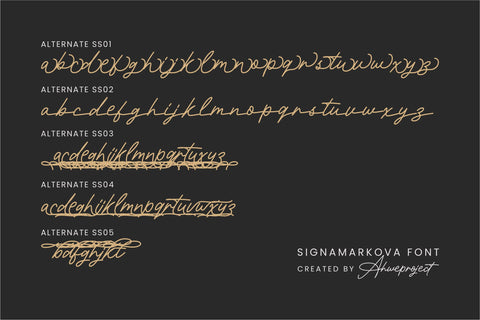 ALTERNATE SS01
abcdefghijklmnopqrstuvwxyz
ALTERNATE SS02
abcdefghijklmnopqrstuvwxyz
ALTERNATE SS03
acdeghijklmnpqrtuxyz
ALTERNATE SS04
acdeghijklmnpqrstuvwxyz
ALTERNATE SS05
bdfghjkl
SIGNAMARKOVA FONT
CREATED BY Ahweproject